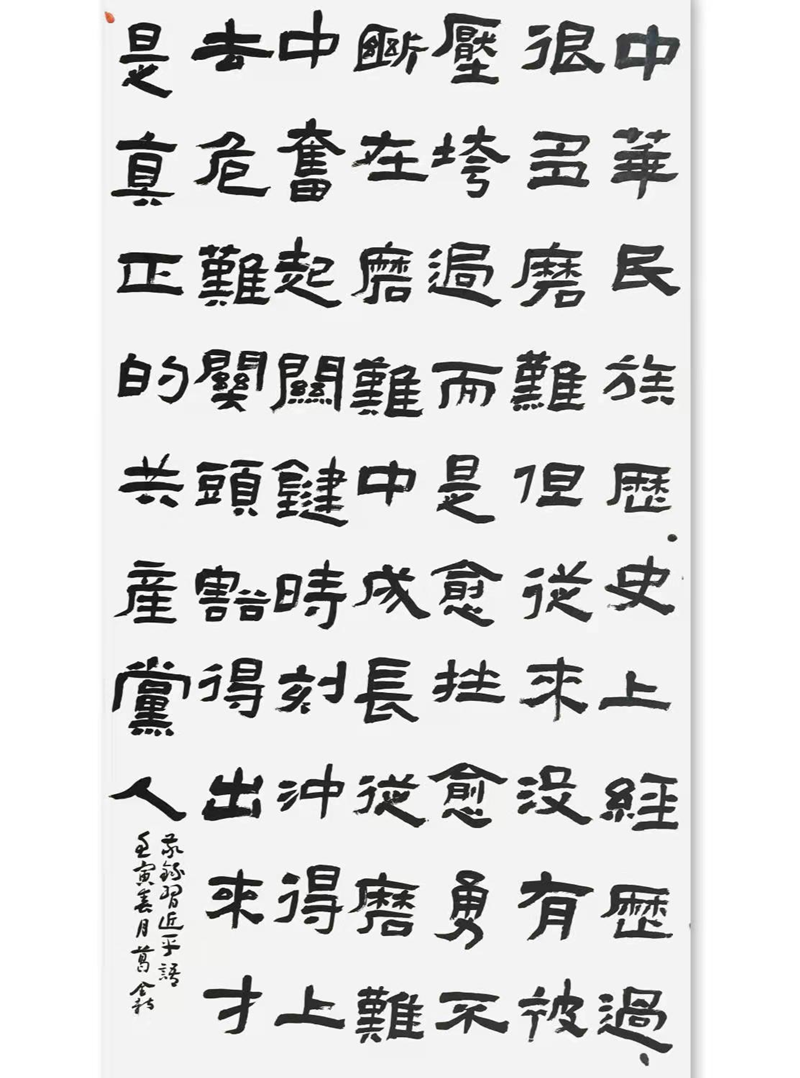 中華民族歷史上經歷過
很多磨難但從來沒有被
壓垮過而是愈挫愈勇不
斷在磨難中成長從磨難
中奮起關鍵時刻沖得上
去危難關頭豁得出來才
是真正的共產黨人
敬錄習近平語
壬寅春月葛